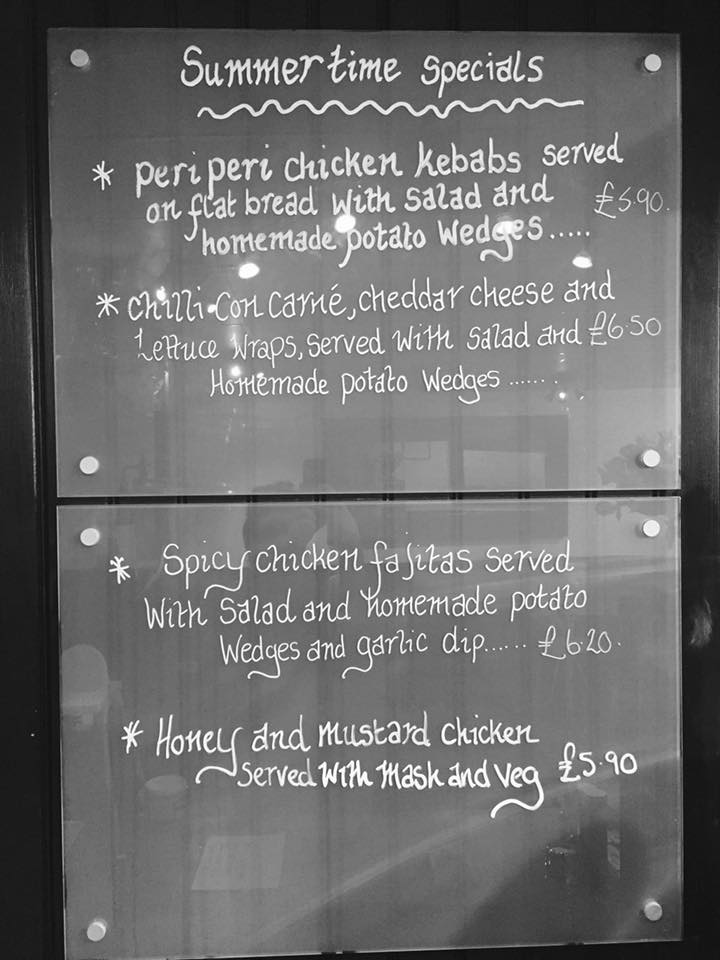 Summertime Specials
* Peri peri chicken kebabs served
on flat bread with salad and £5.90.
homemade potato wedges.....
* Chilli Con Carné, cheddar cheese and
Lettuce Wraps, served with salad and £6.50
Homemade potato wedges .......
* Spicy chicken fajitas served
With Salad and homemade potato
Wedges and garlic dip...... £6.20.
* Honey and mustard chicken
served with mask and veg £5.90